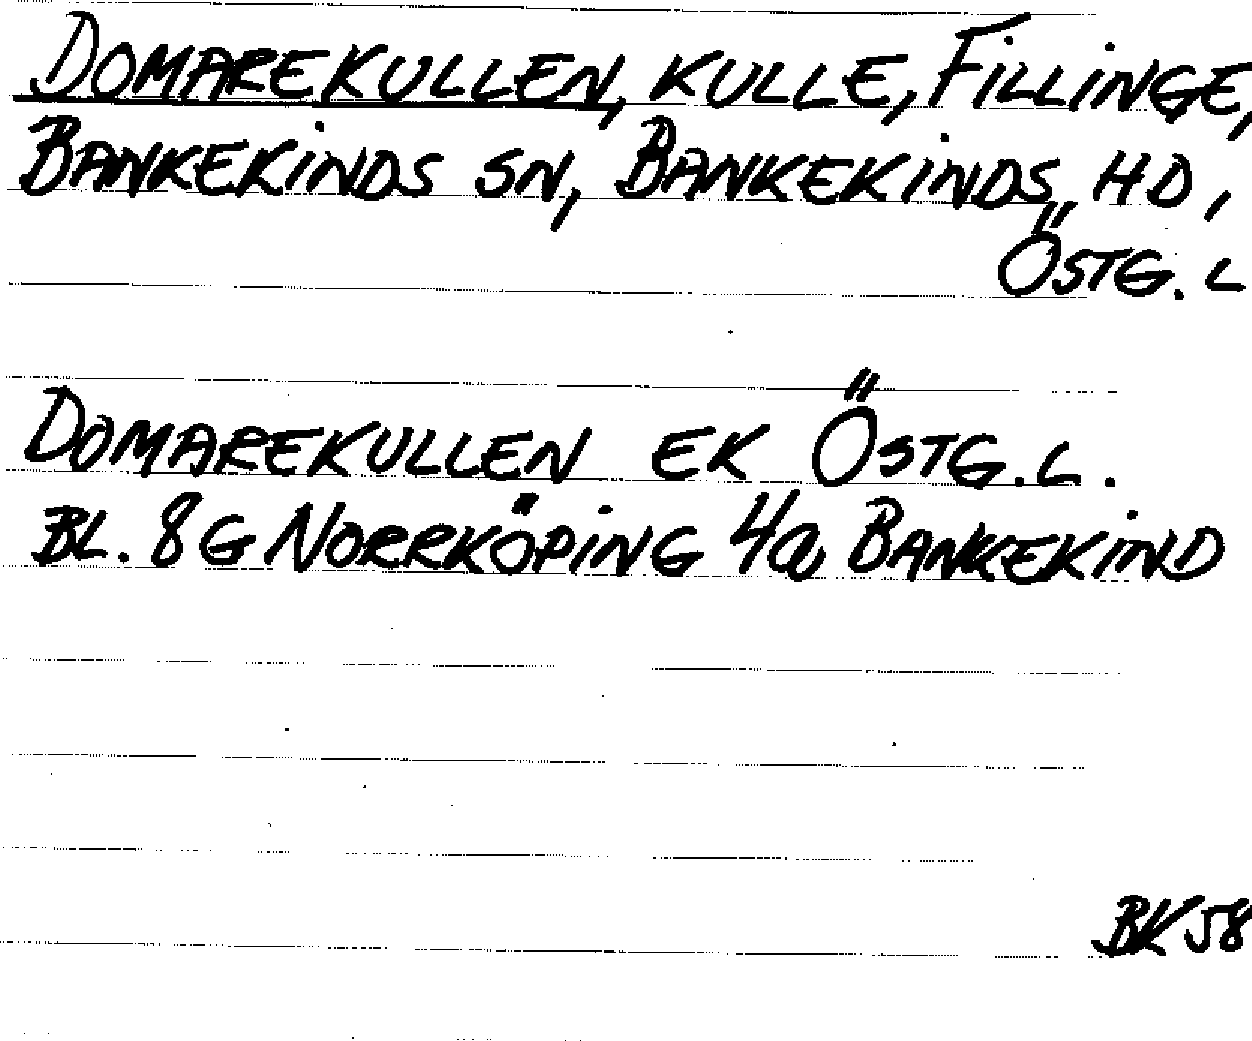 DOMAREKULLEN, KULLE, FILLINGE,
BANKEKINDS SN, BANKEKINDS HD,
ÖSTG. L
DOMAREKULLEN EK ÖSTG. L.
BL. 8G NORRKÖPING 4a BANKEKIND
BK 58